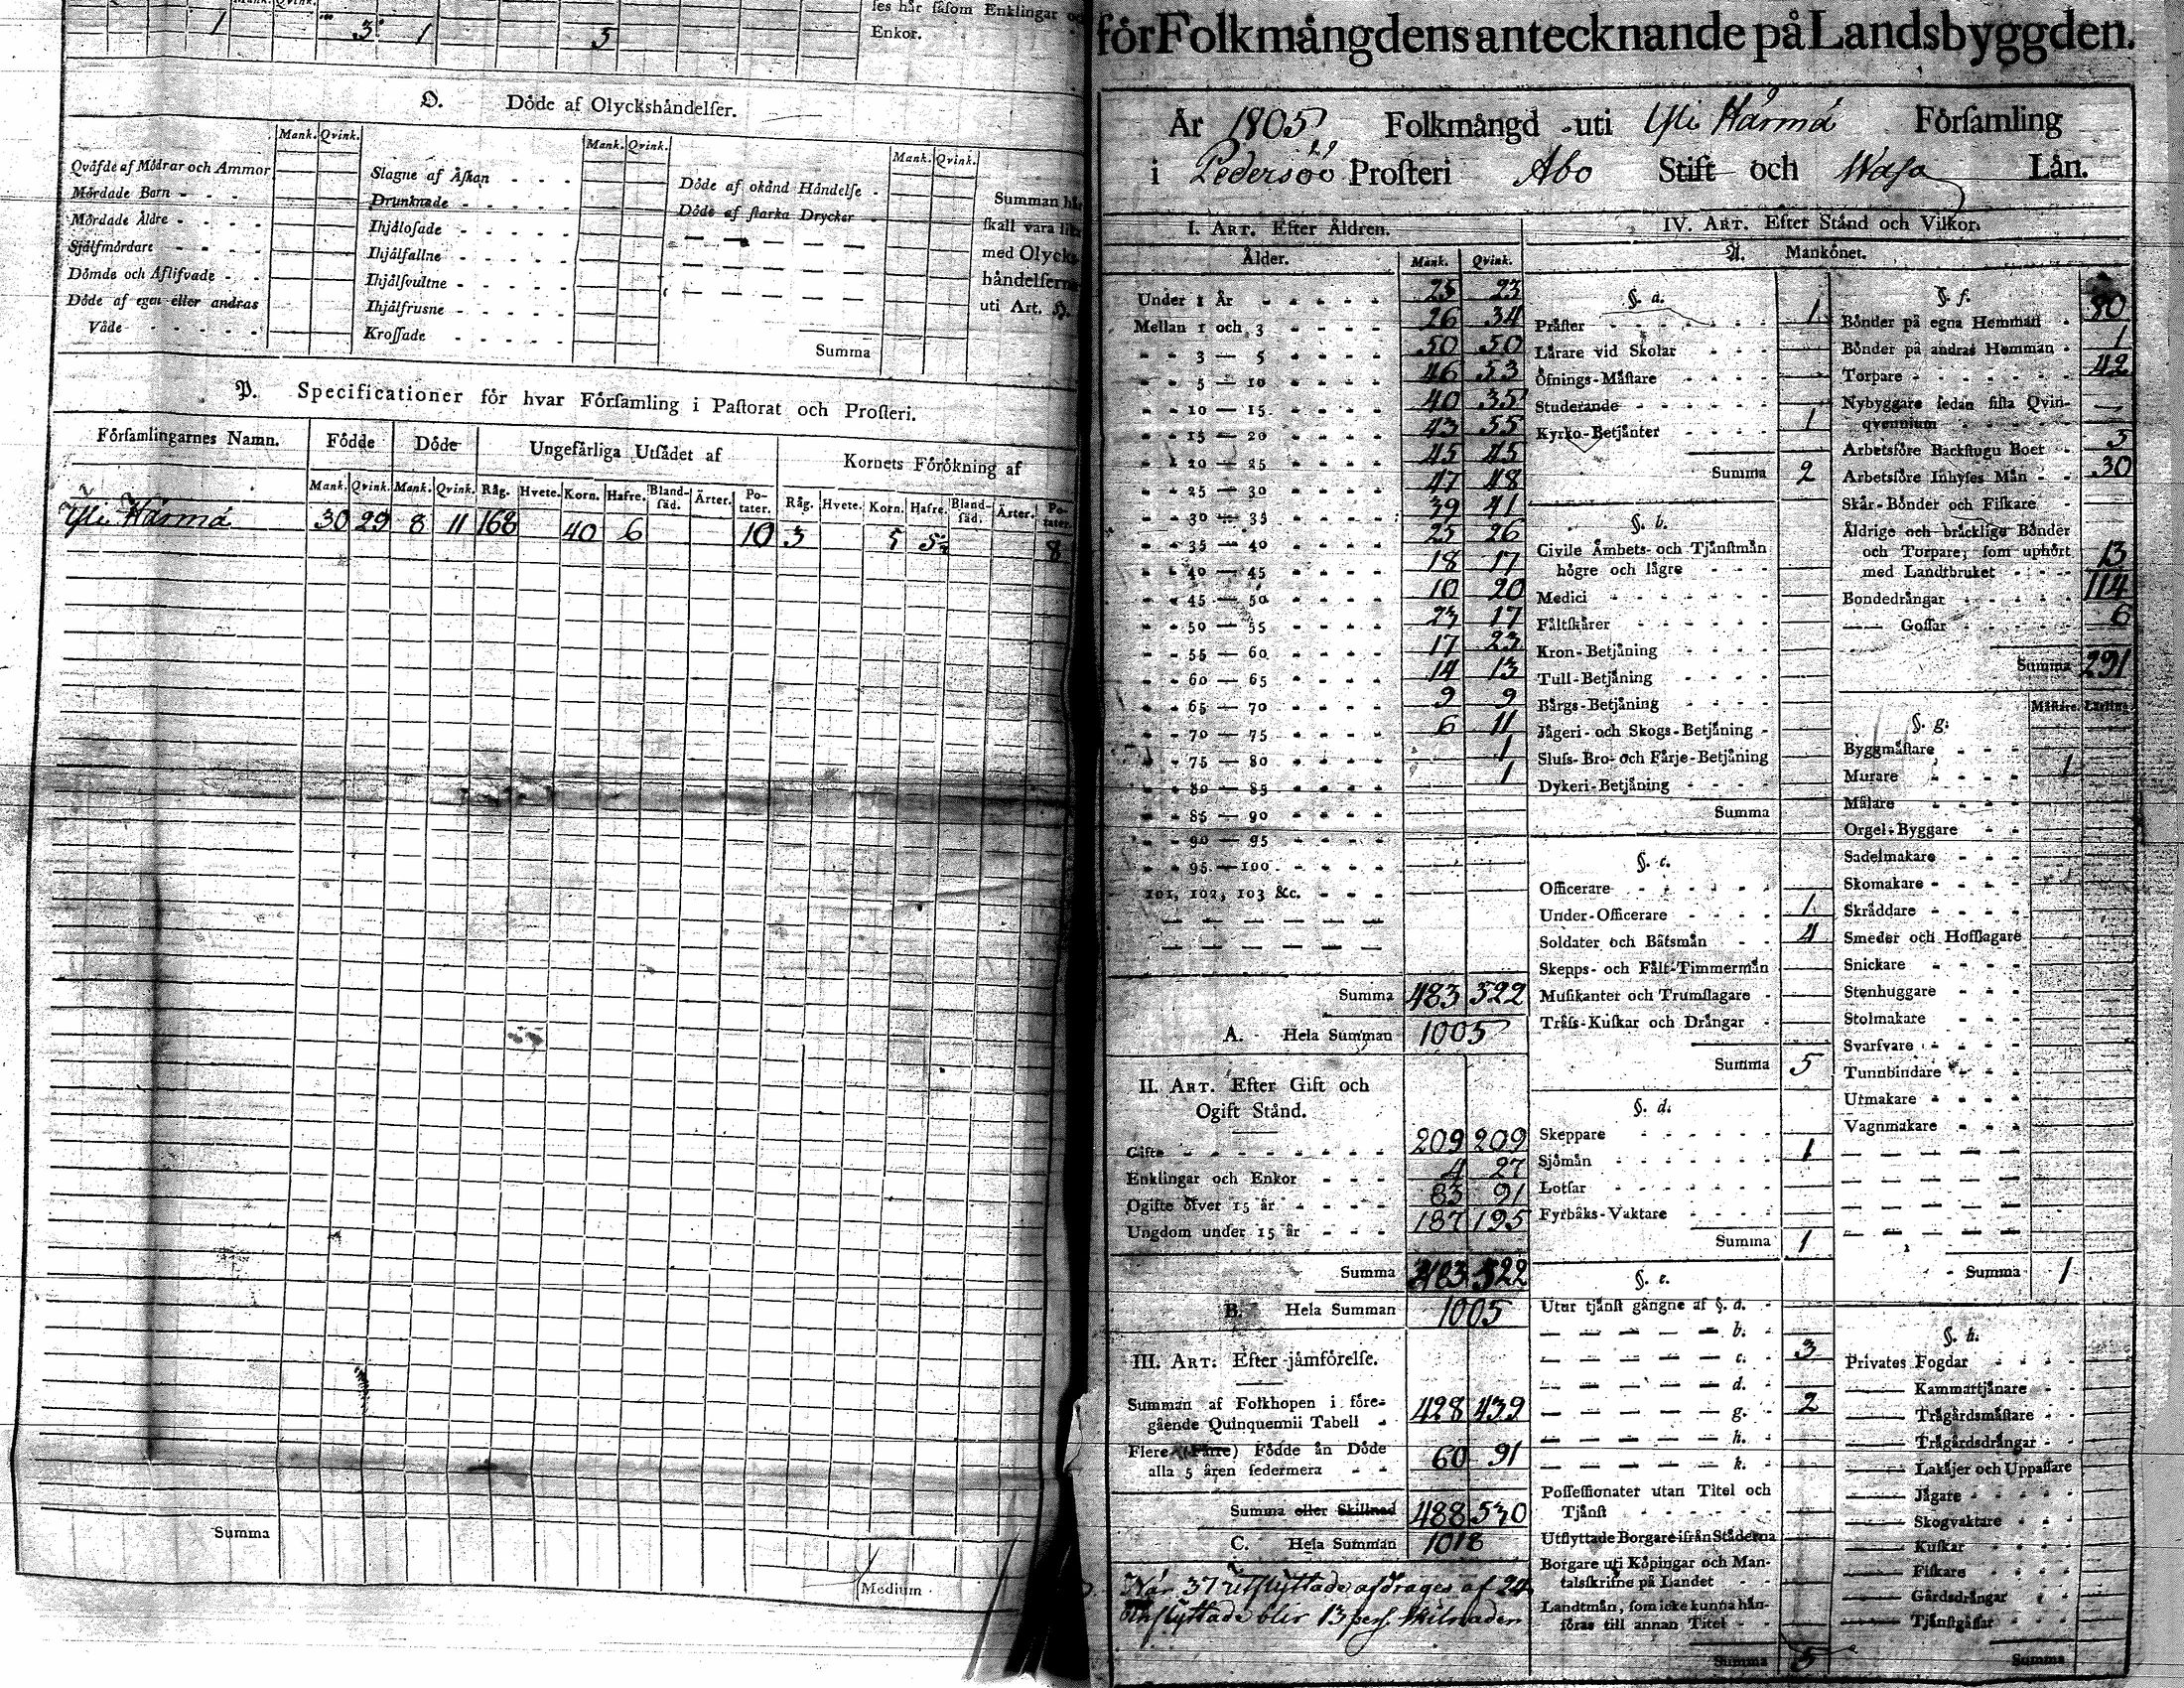 Mank. Qvink.
1 3 1 3
ses här såsom Enklingar
Enkor.
O. Döde af Olyckshändelser.
Mank. Qvink. Mank. Qvink. Mank. Qvink.
Qväfde af Mödrar och Ammor
Mördade Barn
Mördade Äldre
Självmördare
Dömde och Aflifvade
Döde af egen eller andras
Våde
Slagne af Åskan
Drunknade
Ihjälosade
Ihjälfallne
Ihjälsvultne
Ihjälfrusne
Krossade
Döde af okänd Händelse
Döde af starka Drycker
Summa
Summan här
skall vara lika
med Olycks-
händelserna
uti Art.
P. Specificationer för hvar Församling i Pastorat och Prosteri.
Församlingarnes Namn. Födde Döde Ungefärliga Utsädet af Kornets Förökning af
Mank. Qvink. Mank. Qvink. Råg. Hvete. Korn. Hafre. Bland-säd. Ärter. Po-tater. Råg. Hvete. Korn. Hafre. Bland-säd. Ärter. Po-tater.
Yli Härmä 30 29 8 11 168 40 6 10 3 5 8
Summa
Medium
för Folkmängdens antecknande på Landsbyggden.
År 1805 Folkmängd uti Yli Härmä Församling
i Pedersöö Prosteri Åbo Stift och Wasa Län.
I. ART. Efter Åldren.
Ålder. Mank. Qvink.
Under 1 År 25 23
Mellan 1 och 3 26 34
3 — 5 50 50
5 — 10 46 53
10 — 15 40 35
15 — 20 43 55
20 — 25 45 45
25 — 30 47 48
30 — 35 39 41
35 — 40 25 26
40 — 45 18 17
45 — 50 10 20
50 — 55 23 17
55 — 60 17 23
60 — 65 14 13
65 — 70 9 9
70 — 75 6 11
75 — 80 1
80 — 85 1
85 — 90
90 — 95
95 — 100
101, 102, 103 &c.
Summa 483 522
A. Hela Summan 1005
II. ART. Efter Gift och
Ogift Stånd.
Gifte 209 209
Enklingar och Enkor 4 27
Ogifte öfver 15 år 83 91
Ungdom under 15 år 187 195
Summa 483 522
B. Hela Summan 1005
III. ART. Efter jämförelse.
Summan af Folkhopen i före-
gående Quinquennii Tabell 428 439
Flere (Färre) Födde än Döde
alla 5 åren sedermera 60 91
Summa eller Skillnad 488 530
C. Hela Summan 1018
När 37 utflyttade afdrages af 24
inflyttade blir 13 pers. skilnaden
IV. ART. Efter Stånd och Vilkor.
A. Mankönet.
§. a.
Präster 1
Lärare vid Skolar
Öfnings-Mästare
Studerande
Kyrko-Betjänter 1
Summa 2
§. b.
Civile Ämbets- och Tjänstmän
högre och lägre
Medici
Fältskärer
Kron-Betjäning
Tull-Betjäning
Bärgs-Betjäning
Jägeri- och Skogs-Betjäning
Sluss-Bro- och Färje-Betjäning
Dykeri-Betjäning
Summa
§. c.
Officerare
Under-Officerare 1
Soldater och Båtsmän 4
Skepps- och Fält-Timmermän
Musikanter och Trumslagare
Träss-Kuskar och Drängar
Summa 5
§. d.
Skeppare
Sjömän 1
Lotsar
Fyrbåks-Vaktare
Summa 1
§. e.
Utur tjänst gångne af §. a.
b.
c. 3
d.
g. 2
h.
k.
Possessionater utan Titel och
Tjänst
Utflyttade Borgare ifrån Städerna
Borgare uti Köpingar och Man-
talsskrifne på Landet
Landtmän, som icke kunna hän-
föras till annan Titel
Summa 5
§. f.
Bönder på egna Hemman 80
Bönder på andras Hemman 1
Torpare 42
Nybyggare sedan sista Qvin-
qvennium —
Arbetsföre Backstugu Boer 5
Arbetsföre Inhyses Män 30
Skär-Bönder och Fiskare
Äldrige och bräcklige Bönder
och Torpare, som uphört
med Landtbruket 13
Bondedrängar 114
— Gossar 6
Summa 291
Mästare. Lärling.
§. g.
Byggmästare
Murare 1
Målare
Orgel-Byggare
Sadelmakare
Skomakare
Skräddare
Smeder och Hofslagare
Snickare
Stenhuggare
Stolmakare
Svarfvare
Tunnbindare
Urmakare
Vagnmakare
Summa 1
§. h.
Privates Fogdar
— Kammartjänare
— Trägårdsmästare
— Trägårdsdrängar
— Lakäjer och Uppassare
— Jägare
— Skogvaktare
— Kuskar
— Fiskare
— Gårdsdrängar
— Tjänstgåssar
Summa